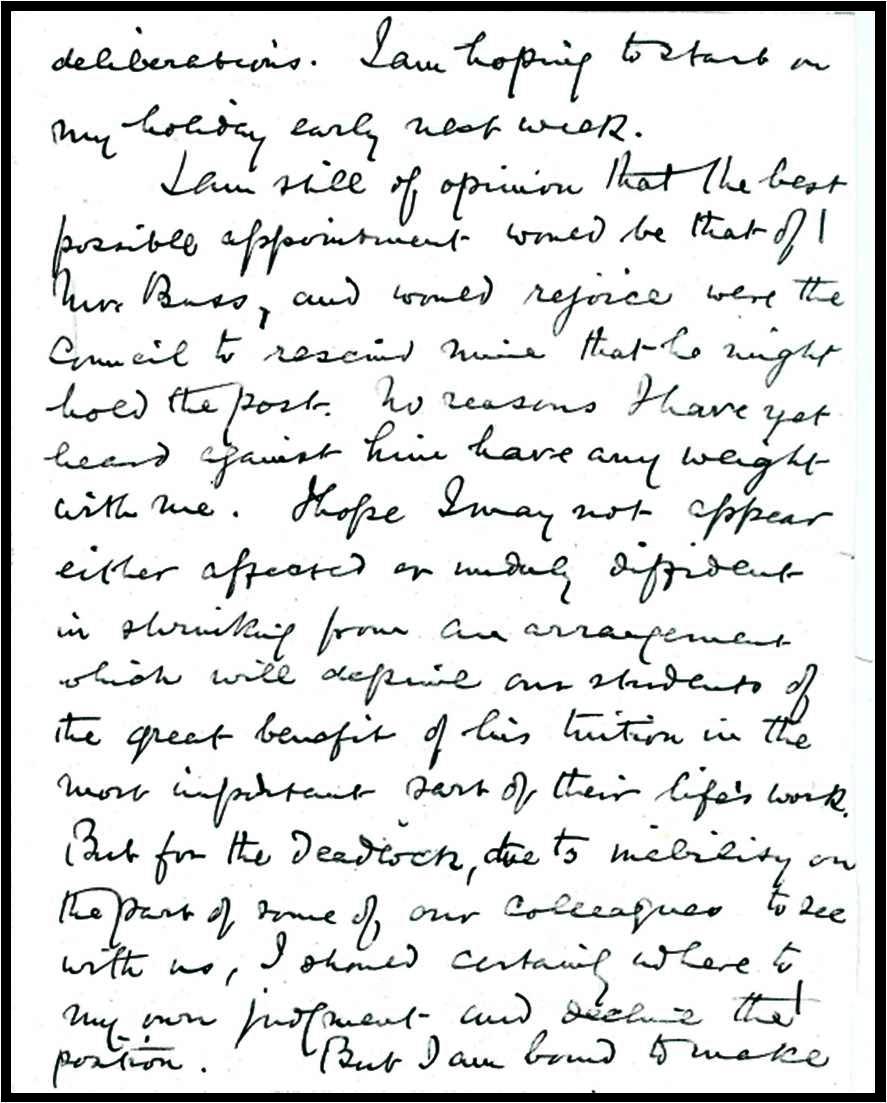 deliberations. I am hoping to start on
my holiday early next week.
I am still of opinion that the best
possible appointment would be that of
Mr. Buss, and would rejoice were the
Council to rescind mine that he might
hold the post. No reasons I have yet
heard against him have any weight
with me. I hope I may not appear
either affected or unduly diffident
in shrinking from an arrangement
which will deprive our students of
the great benefit of his tuition in the
most important part of their life's work.
But for the deadlock, due to inability on
the part of some of our colleagues to see
with us, I should certainly adhere to
my own judgment and decline the
position. But I am bound to make